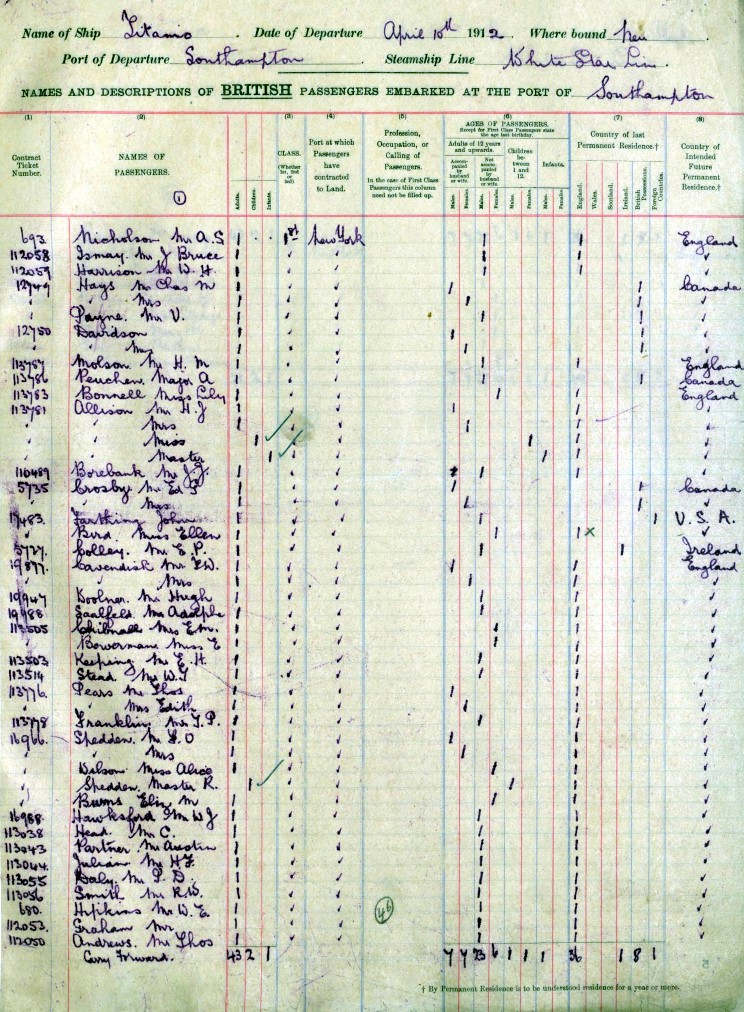 Name of Ship Titanic Date of Departure April 10th 1912 Where bound New
Port of Departure Southampton Steamship Line White Star Line.
NAMES AND DESCRIPTIONS OF BRITISH PASSENGERS EMBARKED AT THE PORT OF Southampton
(1) (2) (3) (4) (5) (6) (7) (8)
Contract Ticket Number.
NAMES OF PASSENGERS.
1
Adults. Children. Infants.
CLASS. (Whether 1st, 2nd or 3rd)
Port at which Passengers have contracted to Land.
Profession, Occupation, or Calling of Passengers.
In the case of First Class Passengers this column need not be filled up.
AGES OF PASSENGERS.
Except for First Class Passengers state the age last birthday.
Adults of 12 years and upwards.
Accompanied by husband or wife.
Not accompanied by husband or wife.
Children between 1 and 12.
Infants.
Males. Females. Males. Females. Males. Females. Males. Females.
Country of last Permanent Residence.†
England. Wales. Scotland. Ireland. British Possessions. Foreign Countries.
Country of Intended Future Permanent Residence.†
693 Nicholson Mr A.S 1 1st New York 1 1 England
112058 Ismay Mr J Bruce 1 1 1
112059 Harrison Mr W. H. 1 1 1
12749 Hays Mr Chas M 1 1 1 Canada
" " Mrs 1 1 1
" Payne Mr V. 1 1 1
12750 Davidson 1 1 1
" " Mrs 1 1 1
113787 Molson Mr H. M 1 1 1 England
113786 Peuchen Major A 1 1 1 Canada
113783 Bonnell Miss Lily 1 1 1 England
113781 Allison Mr H. J 1 1 1
" " Mrs 1 1 1
" " Miss 1 1 1
" " Master 1 1 1
110489 Borebank Mr J.J. 1 1 1
5735 Crosby Mr Ed G 1 1 1 Canada
" " Mrs 1 1 1
17483. Farthing John 1 1 1 U.S.A.
" Bird Miss Ellen 1 1 1 x
5727. Colley. Mr E. P. 1 1 1 Ireland
19877. Cavendish Mr T.W. 1 1 1 England
" " Mrs 1 1 1
19947 Woolner Mr Hugh 1 1 1
19988 Saalfeld. Mr Adolphe 1 1 1
113505 Chibnall Mrs E.M. 1 1 1
" Bowerman Miss E 1 1 1
113503 Keeping Mr E. H. 1 1 1
113514 Stead Mr W.T 1 1 1
113776. Pears Mr Thos 1 1 1
" " Mrs Edith 1 1 1
113778 Franklin Mr T.P. 1 1 1
16966. Spedden. Mr F. O 1 1 1
" " Mrs 1 1 1
" Wilson Miss Alice 1 1 1
" Spedden, Master R. 1 1 1
" Burns Eliz M 1 1 1
16988. Hawksford Mr W J 1 1 1
113038 Head. Mr C. 1 1 1
113043 Partner Mr Austin 1 1 1
113044. Julian Mr H.F. 1 1 1
113055 Daly. Mr P. D. 1 1 1
113056 Smith Mr R.W. 1 1 1
680. Hipkins Mr W. E. 1 1 1
112053. Graham Mr 1 1 1
112050 Andrews. Mr Thos 1 1 1
Carry Forward. 43 2 1 7 7 23 6 1 1 1 36 1 8 1
46
† By Permanent Residence is to be understood residence for a year or more.